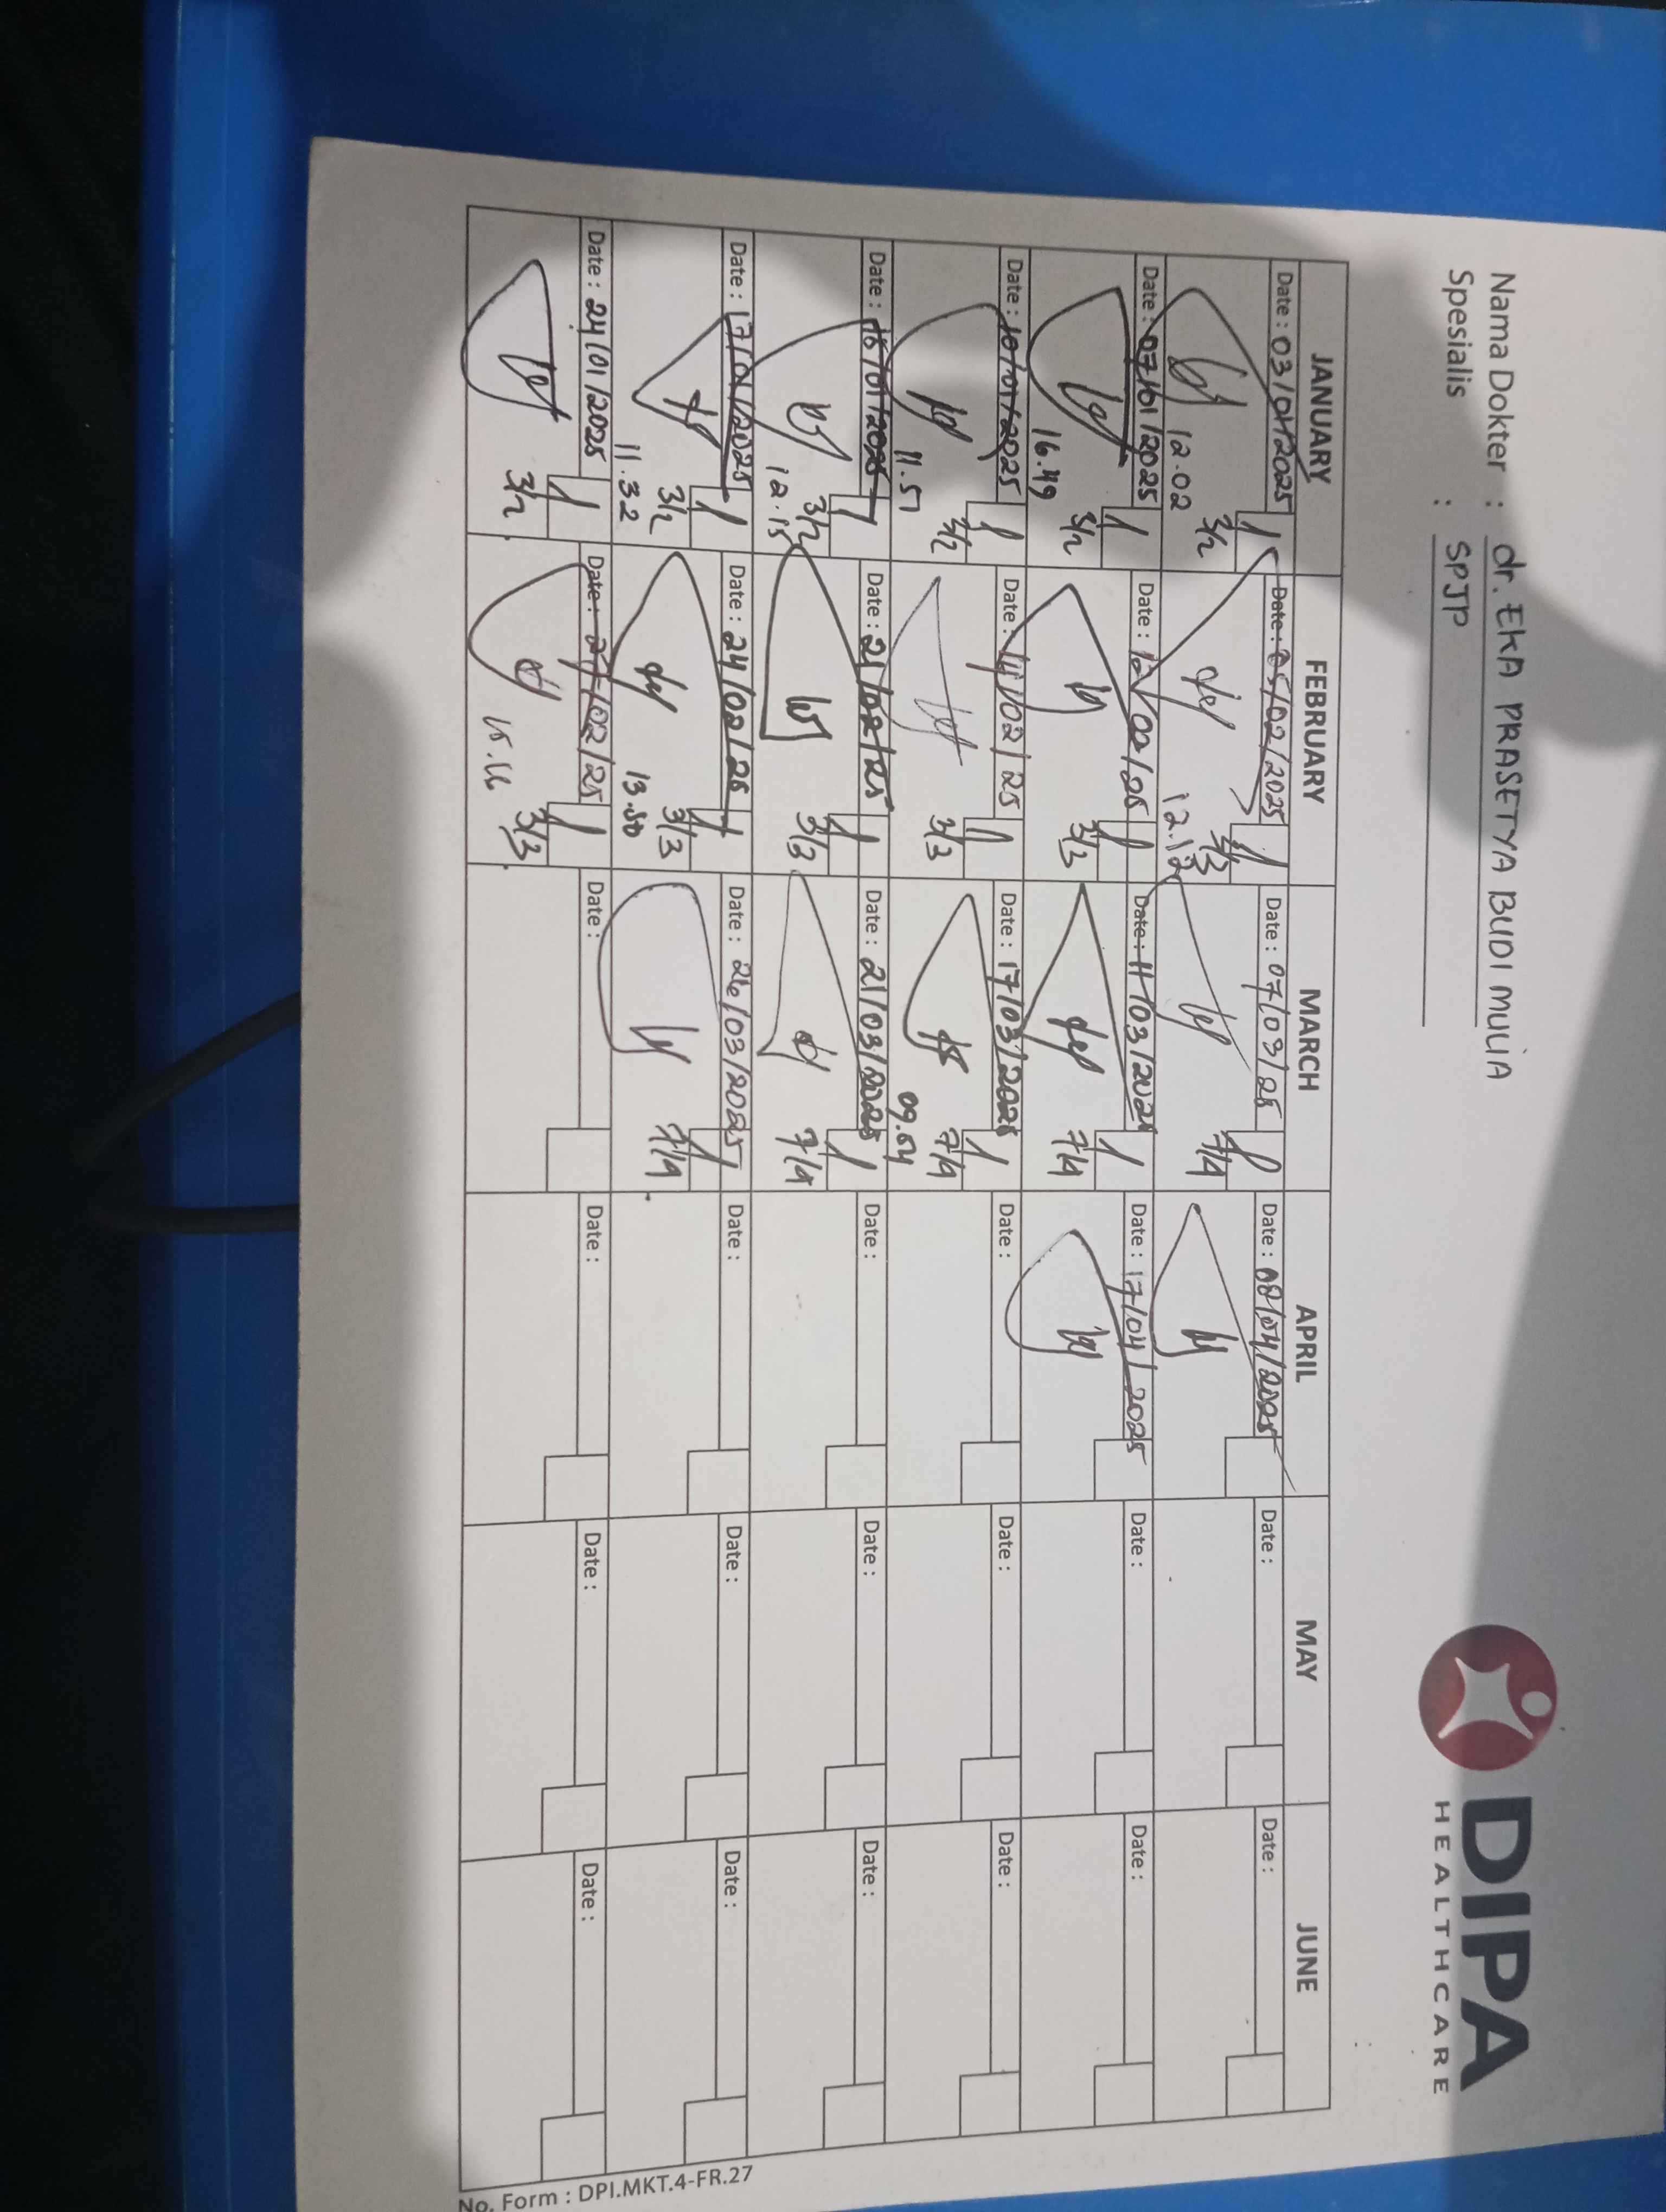 Nama Dokter : dr. EKA PRASETYA BUDI MULIA
Spesialis : SPJP
DIPA
HEALTHCARE
JANUARY FEBRUARY MARCH APRIL MAY JUNE
Date : 03/01/2025 Date : 05/02/2025 Date : 07/03/25 Date : 08/04/2025 Date : Date :
12.02 3/2 12.12 3/3 7/4
Date : 07/01/2025 Date : 12/02/25 Date : 11/03/2025 Date : 17/04/2025 Date : Date :
16.49 3/2 3/3 7/4
Date : 10/01/2025 Date : /02/25 Date : 17/03/2025 Date : Date : Date :
11.51 3/2 3/3 09.54 7/4
Date : /01/2025 Date : 21/02/25 Date : 21/03/2025 Date : Date : Date :
12.15 3/2 3/3 7/4
Date : 17/01/2025 Date : 24/02/25 Date : 26/03/2025 Date : Date : Date :
11.32 3/2 13.50 3/3 7/4
Date : 24/01/2025 Date : 27/02/25 Date : Date : Date : Date :
3/2 3/3
No. Form : DPI.MKT.4-FR.27